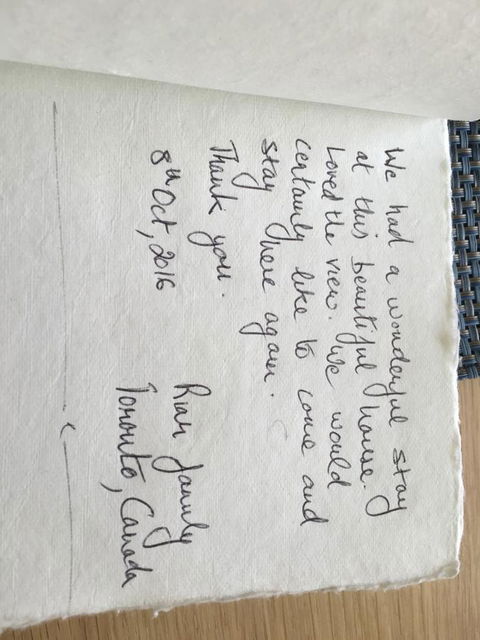 We had a wonderful stay
at this beautiful house.
Loved the view. We would
certainly like to come and
stay here again.
Thank you.
family
8th Oct, 2016
Toronto, Canada